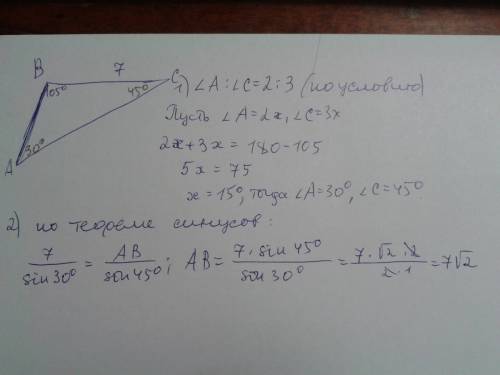 B 7 C
105° 45°
A 30°
1) ∠A:∠C=2:3 (по условию)
Пусть ∠A=2x, ∠C=3x
2x+3x=180-105
5x=75
x=15°, тогда ∠A=30°, ∠C=45°
2) по теореме синусов:
7/sin30° = AB/sin45°; AB= 7·sin45°/sin30° = 7·√2·2/2·1 = 7√2